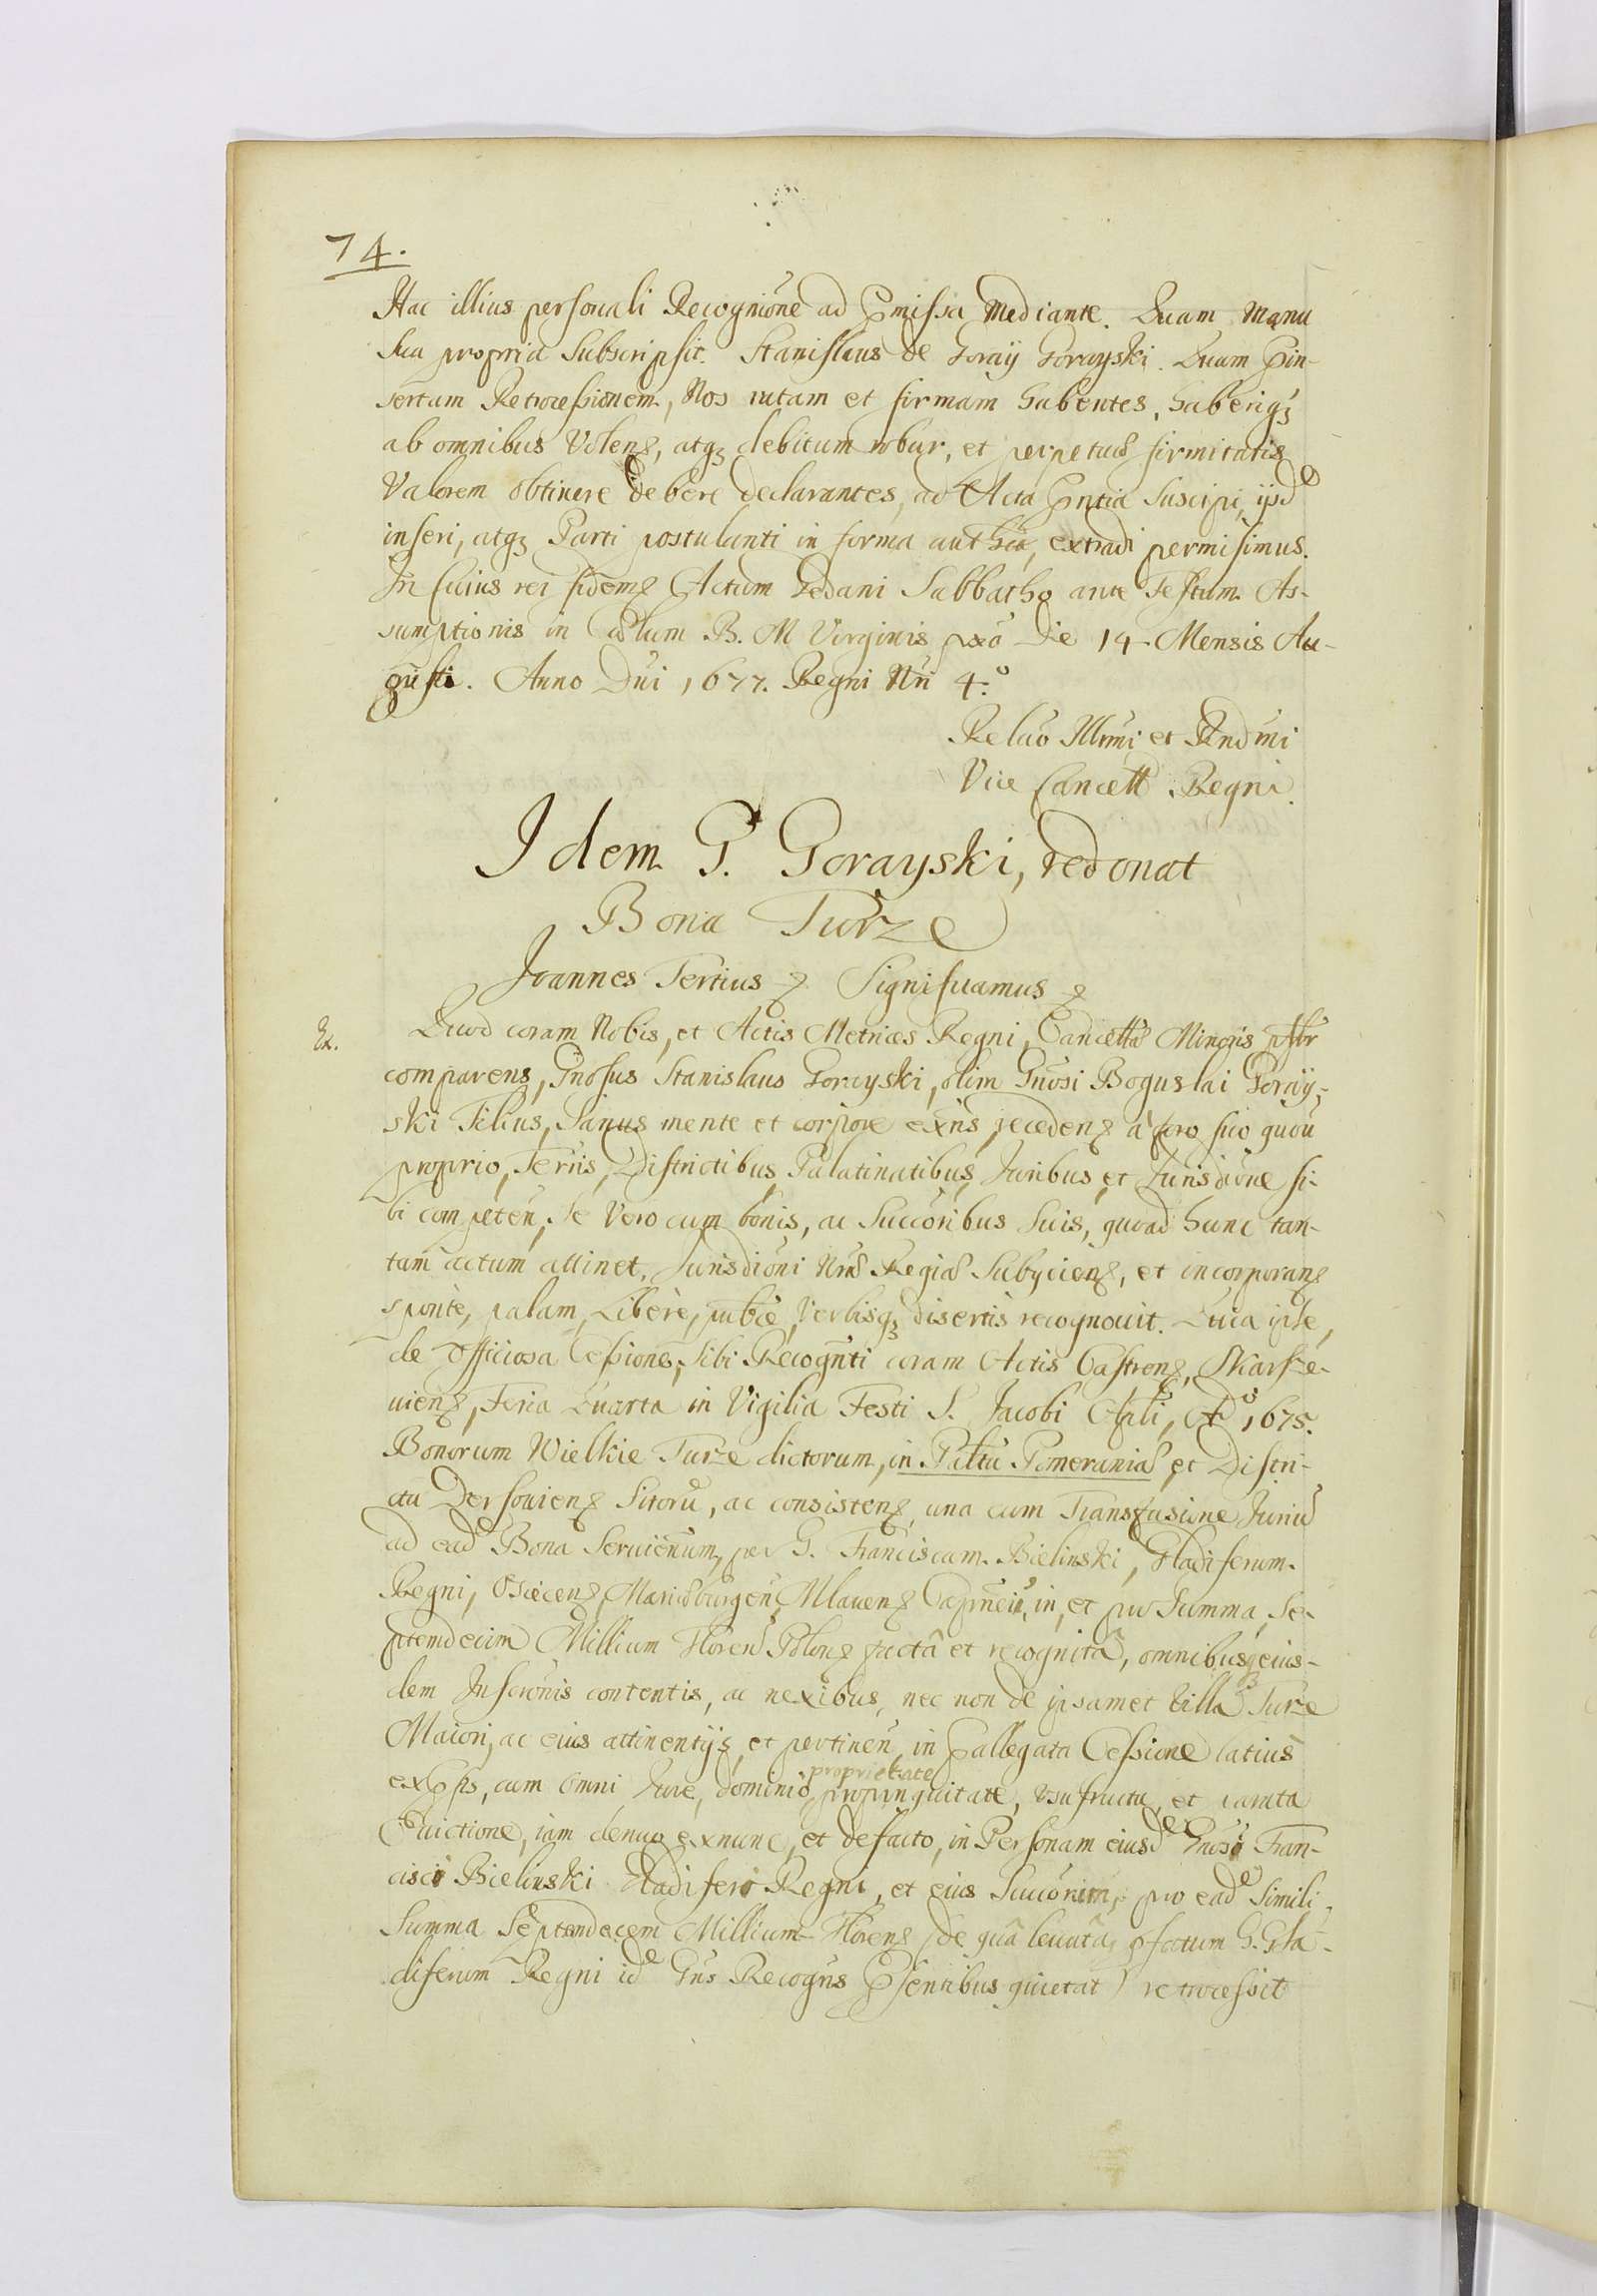 74.
Hac illius personali Recognićone ad pmissa mediante. Quam manu
sua propria Subscripsit. Stanislaus de Goraij Gorayski. Quam pin-
sertam Retrocessionem, Nos ratam et firmam habentes, haberiqꝫ
ab omnibus Volenꝭ, atqꝫ debitum robur, et perpetuæ firmitatis
Valorem obtinere debere declarantes, ad Acta pntia Suscipi, ijsdē
inseri, atqꝫ Parti postulanti in forma authca, extradi permisimus.
In Cuius rei fidemꝭ Actum Gedani Sabbatho ante Festum As-
sumptionis in Cælum B. M Virginis pxō Die 14. Mensis Au-
gusti. Anno Dni 1677. Regni Nri 4.º
Relaō Illrmi et Rndmi
Vice Cancell Regni
Idem G. Gorayski, redonat
Bona Turze
Joannes Tertius ꝭ Significamus ꝭ
Ex. Quod coram Nobis, et Actis Metrices Regni, Cancellæ Minoris psbr
comparens, Gnosus Stanislaus Gorayski, olim Gnosi Boguslai Goraij-
ski Filius, Sanus mente et corpore exns, recedenꝭ à foro suo quou
proprio, Terris, Districtibus, Palatinatibus, Juribus, et Jurisdićone si-
bi competen, Se Vero cum bonis, ac Succoribus Suis, quoad hunc tan-
tum actum attinet, Jurisdićoni Nræ Regiæ Subijcienꝭ, et incorporanꝭ
sponte, palam, Libere, publce, Verbisqꝫ disertis recognovit. Quia ipse,
de Officiosa Cessione, Sibi Recognti coram Actis Castrenꝭ, Skarsze-
vienꝭ, Feria Quarta in Vigilia Festi S. Jacobi Apli, Aº 1675.
Bonorum Wielkie Turze dictorum, in Paltu Pomeraniæ et Distri-
ctu Dersovienꝭ Sitorū, ac consistenꝭ, una cum Transfusione Juriū
ad eadē Bona Servienum, per G. Franciscum Bielinski, Gladiferum
Regni, Osiecenꝭ, Mariæburgen, Mlavenꝭ Capneū, in, et pro Summa, Se-
ptemdecim Millium Floren Polonꝭ factâ et recognitâ, omnibusqꝫ eius-
dem Inscrōnis contentis, ac nexibus, nec non de ipsamet Villa Turze
Maiori, ac eius attinentijs, et pertinen, in pallegata Cessione latius
expssis, cum omni Jure, dominio, proprietate propinquitate, usufructu, et parata
Evictione, iam denuo exnunc, et defacto, in Personam eiusdē Gnosi Fran-
cisci Bielinski Gladiferi Regni, et eius Succorum, pro eadē Simili
Summa Septemdecem Millium Florenꝭ (de quâ levatâ, pfatum G. Gla-
diferum Regni idē Gns Recogns psentibus quietat) retrocessit